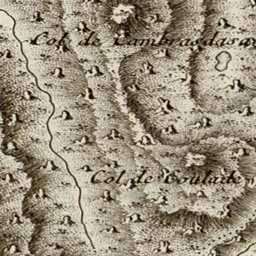 Col de Cambrasdas
Col de Coulade